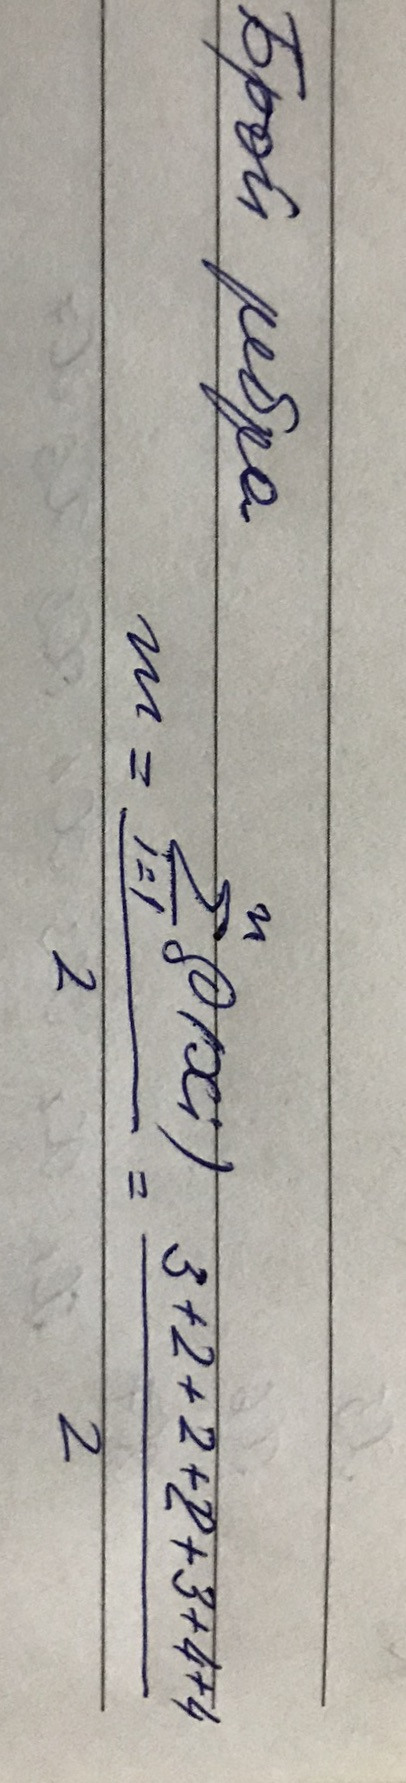 Брой ребра
m = \frac{\sum_{i=1}^{n} ρ(x_i)}{2} = \frac{3+2+2+2+3+4+4}{2}